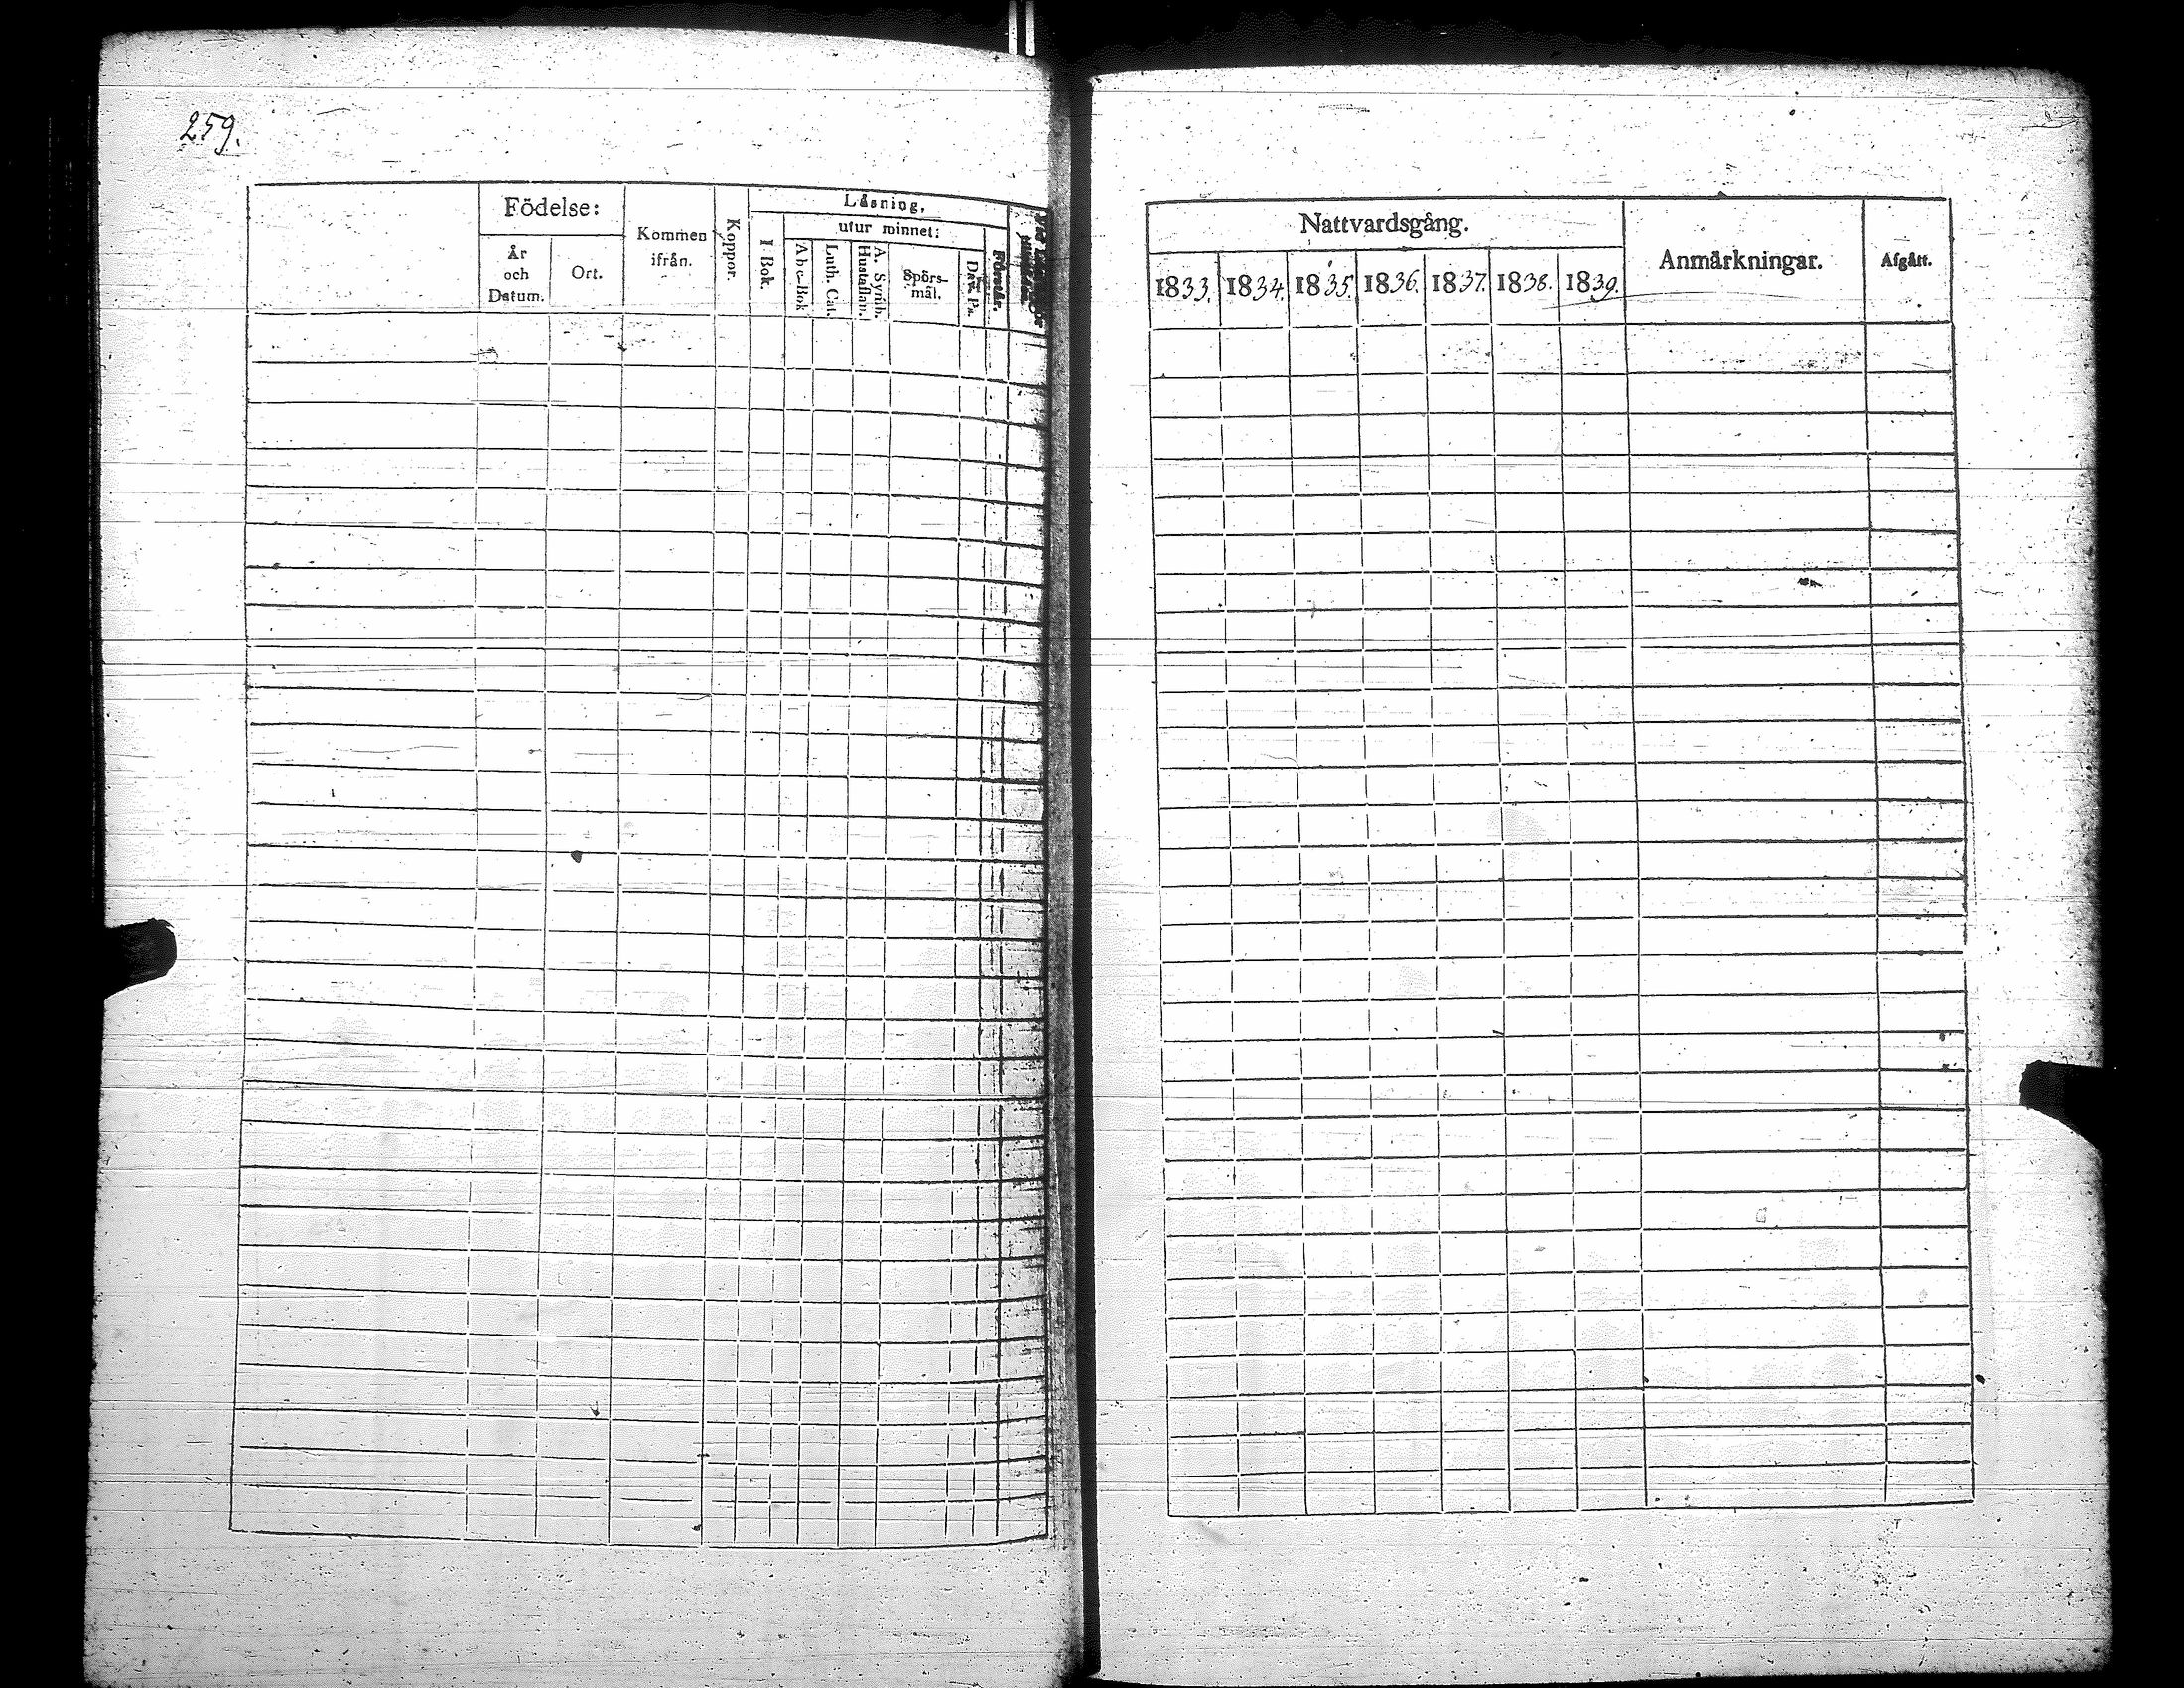 259.
Födelse:
År
och
Datum.
Ort.
Kommen
ifrån.
Koppor.
Läsning,
I Bok.
utur minnet:
Abc-Bok
Luth. Cat.
A. Symb.
Hustaflan.
Spörs-
mål.
Dav. Ps.
Förstår.
Nattvardsgång.
1833.
1834.
1835.
1836.
1837.
1838.
1839.
Anmärkningar.
Afgått.